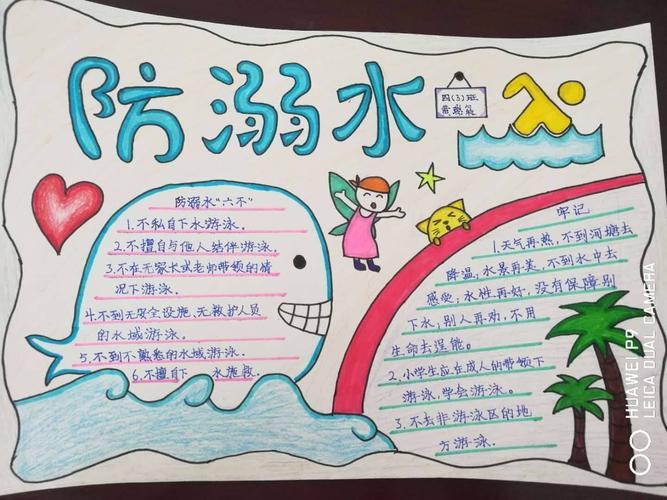 防溺水
四(3)班
防溺水"六不"
1.不私自下水游泳。
2.不擅自与他人结伴游泳。
3.不在无家长或老师带领的情
况下游泳。
4.不到无安全设施、无救护人员
的水域游泳。
5.不到不熟悉的水域游泳。
6.不擅自下 水施救。
牢记
1.天气再热,不到河塘去
降温,水景再美,不到水中去
感受;水性再好,没有保障别
下水,别人再劝,不用
生命去逞能。
2.小学生应在成人的带领下
游泳,学会游泳。
3.不去非游泳区的地
方游泳.
HUAWEI P9
LEICA DUAL CAMERA